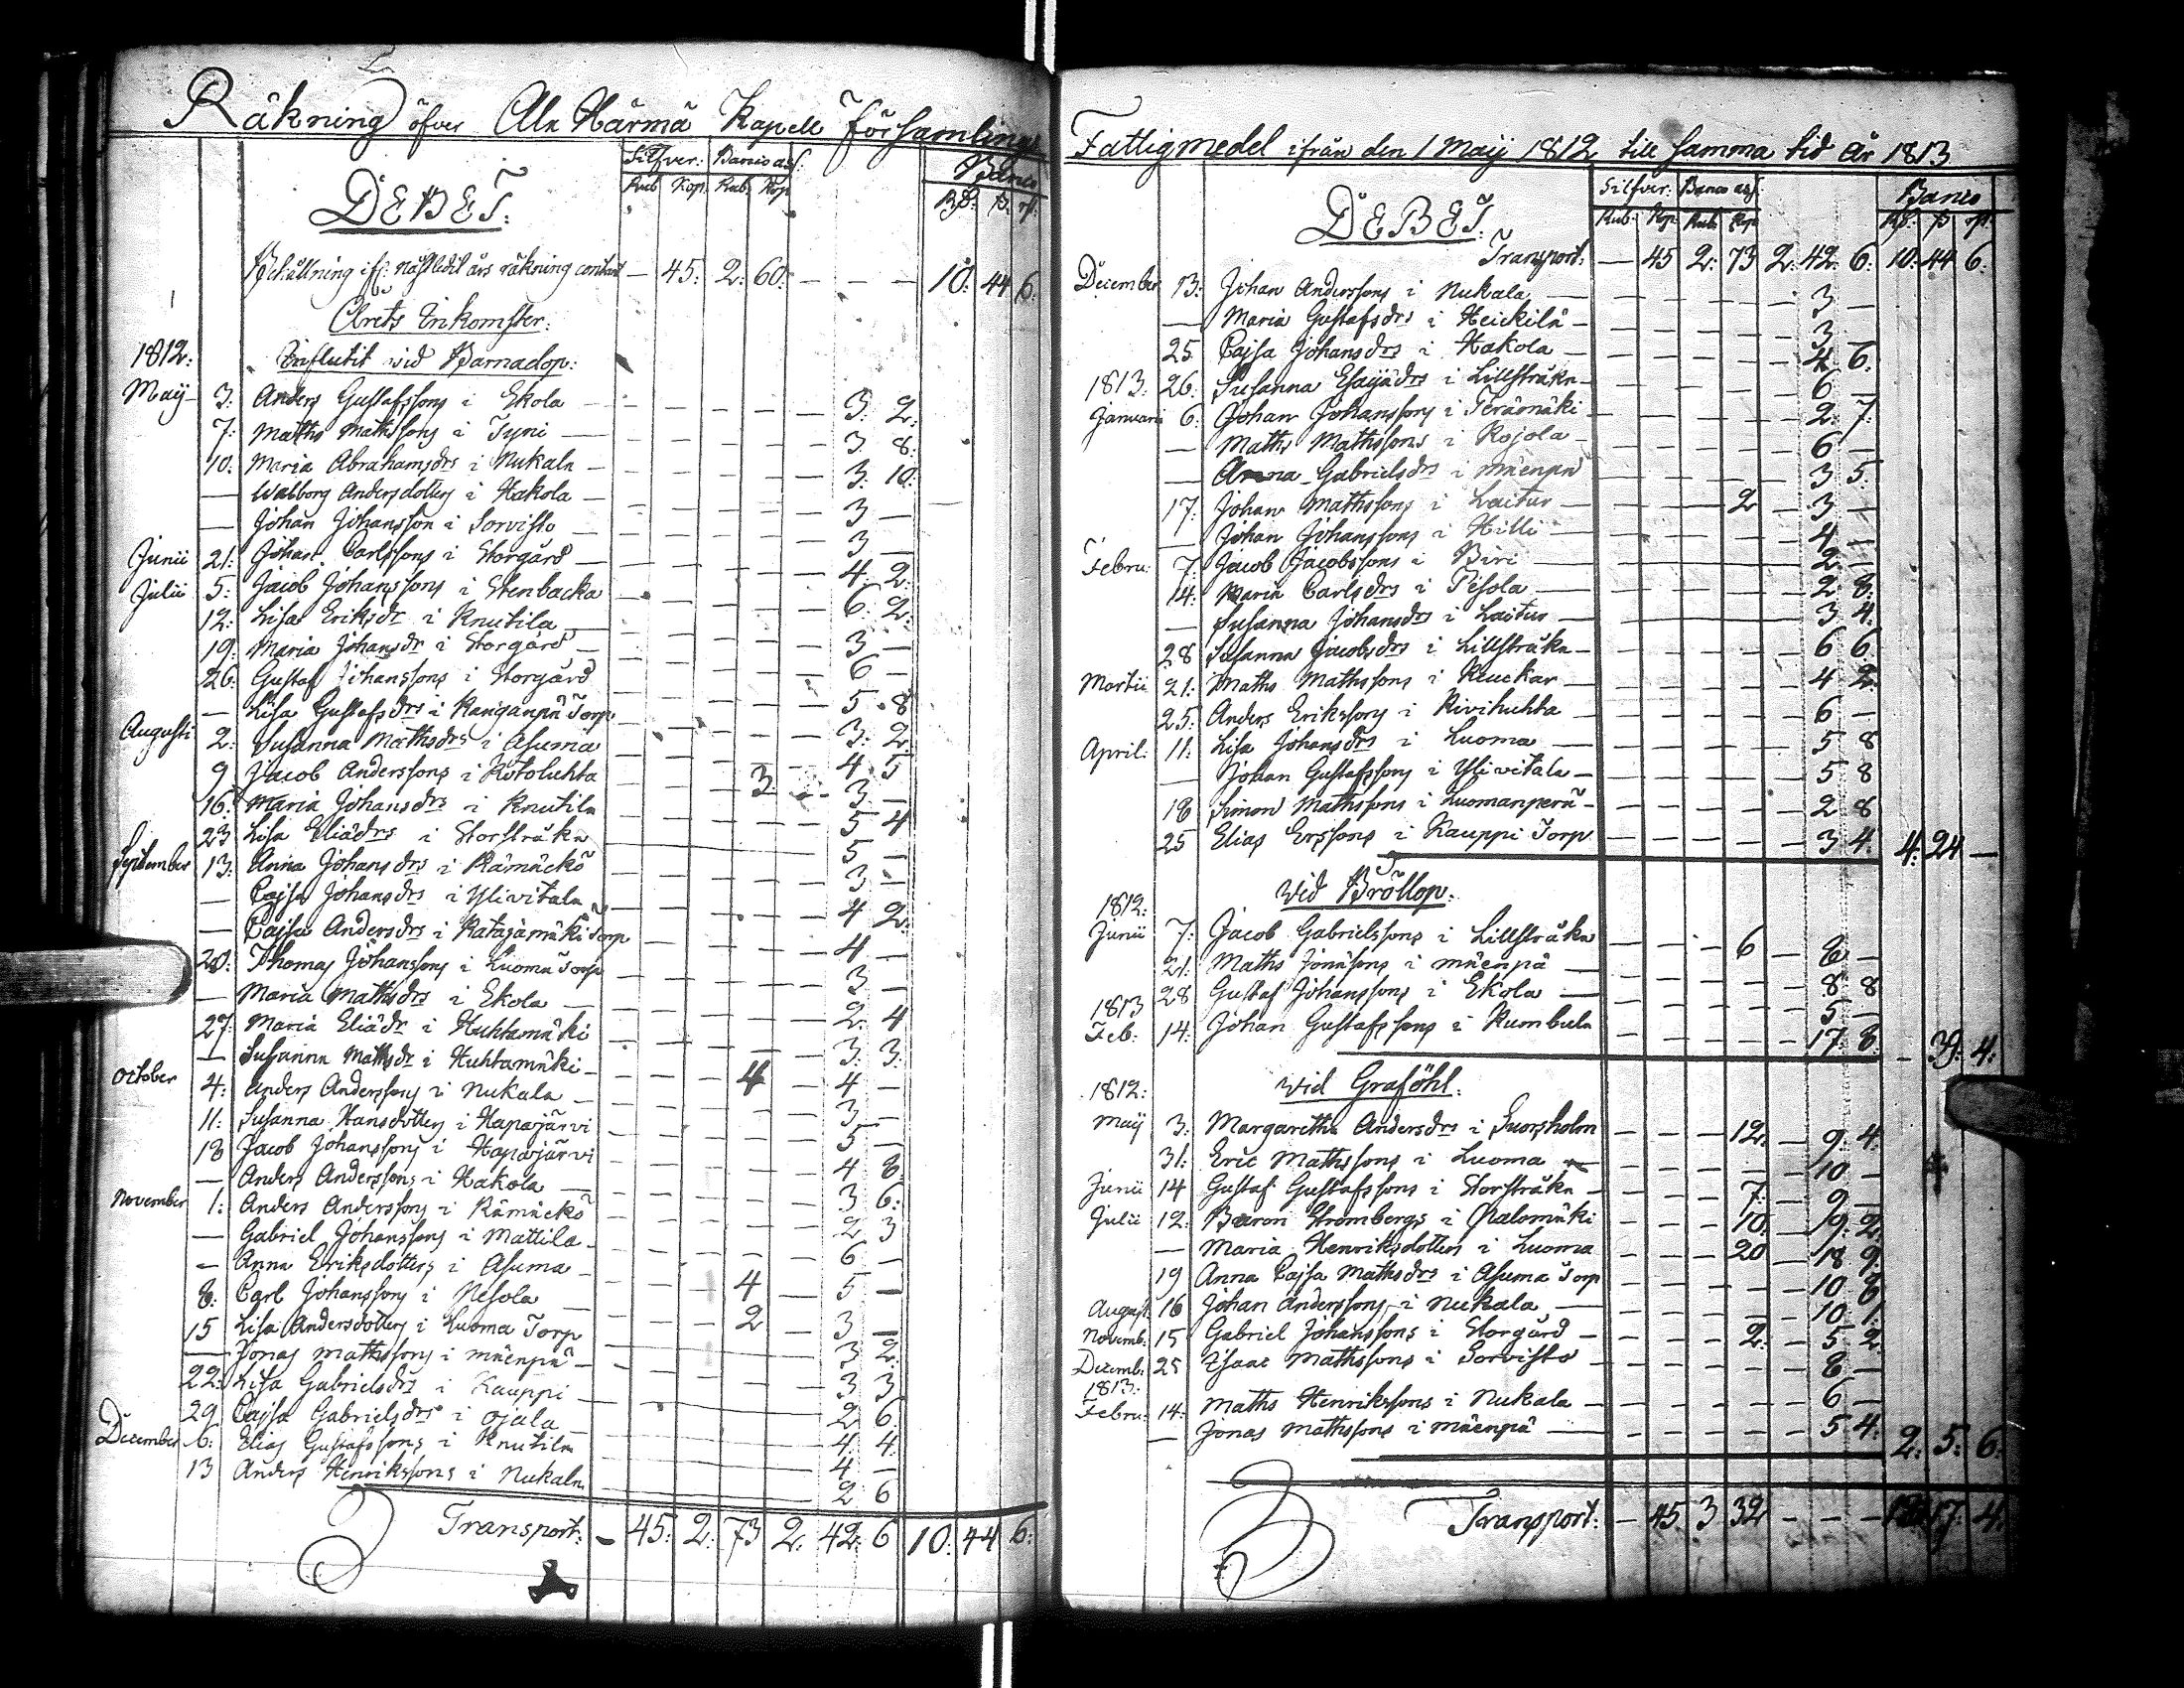 Räkning öfver Ala Härmä Kapell Församlings
DEBET.
Silfver: Banco ass:
Rub Kop. Rub. Kop
Banco
Behållning ifr: nästledit års räkning contant — 45: 2: 60: — — — 10: 44 6:
Årets Inkomster:
1812: Influtit wid Barnadop:
Maij 3: Anders Gustafssons i Ekola — — — — — 3: 2:
7: Maths Mathssons i Tyni — — — — — 3. 8:
10: Maria Abrahamsdrs i Nukala — — — — — 3: 10:
— Walborg Andersdotters i Hakola — — — — — 3 —
— Johan Johansson i Sorvisto — — — — — 3 —
Junii 21: Johan Carlssons i Storgård — — — — — 4: 2:
Julii 5: Jacob Johanssons i Stenbacka — — — — — 6: 2:
12: Lisa Eriksdr i Knutila — — — — — 3 —
19: Maria Johansdr i Storgård — — — — — 6 —
26: Gustaf Johanssons i Storgård — — — — — 5 8
— Lisa Gustafsdrs i Kanganpä Torp — — — — — 3: 2:
Augusti 2: Susanna Mathsdrs i Asuma — — — — — 4 5
9 Jacob Anderssons i Kotoluhta — — — 3 — 3 —
16: Maria Johansdrs i Knutila — — — — — 5 4
23 Lisa Eliädrs i Storsträka — — — — — 5 —
September 13: Anna Johansdrs i Rämäckö — — — — — 3 —
— Cajsa Johansdrs i Ylivitala — — — — — 4 2:
— Cajsa Andersdrs i Katajamäki Torp — — — — — 4 —
20: Thomas Johanssons i Luoma Torp — — — — — 3 —
— Maria Mathsdrs i Ekola — — — — — 2: 4
27: Maria Eliädr i Huhtamäki — — — — — 3: 3:
— Susanna Mathsdr i Huhtamäki — — — 4 — 4 —
October 4: Anders Anderssons i Nukala — — — — — 3 —
11: Susanna Hansdotters i Hapajärvi — — — — — 5 —
18 Jacob Johanssons i Hapajärvi — — — — — 4 8
— Anders Anderssons i Hakola — — — — — 3 6:
November 1: Anders Anderssons i Rämäckö — — — — — 2 3
— Gabriel Johanssons i Mattila — — — — — 6 —
— Anna Eriksdotters i Asuma — — — 4 — 5 —
8: Carl Johanssons i Pesola — — — 2 — 3 —
15 Lisa Andersdotters i Luoma Torp — — — — — 3 2:
— Jonas Mathssons i Mäenpä — — — — — 3 3
22: Lisa Gabrielsdrs i Kauppi — — — — — 2 6
29 Cajsa Gabrielsdrs i Ojala — — — — — 4: 4:
December 6: Elias Gustafssons i Knutila — — — — — 4 —
13 Anders Henrikssons i Nukala — — — — — 2 6
Transport: — 45: 2: 73 2: 42: 6 10: 44 6:
Fattigmedel ifrån den 1 Maij 1812 till samma tid år 1813
DEBET.
Silfver: Banco ass:
Rub: Kop Rub. Kop
Banco
Transport: — 45 2: 73 2: 42: 6: 10: 44 6:
December 13: Johan Anderssons i Nukala — — — — — 3 —
— Maria Gustafsdrs i Heickilä — — — — — 3 —
25 Cajsa Johansdrs i Hakola — — — — — 4 6:
1813. 26: Susanna Esaiädrs i Lillsträka — — — — — 6 —
Januarii 6: Johan Johanssons i Terämäki — — — — — 2: 7:
— Maths Mathssons i Kojola — — — — — 6 —
— Anna Gabrielsdrs i Mäenpä — — — — — 3 5:
17: Johan Mathssons i Laitur — — — 2 — 3 —
— Johan Johanssons i Hilli — — — — — 4 —
Febru: 7: Jacob Jacobssons i Biri — — — — — 2 —
14: Maria Carlsdrs i Pesola — — — — — 2: 8:
— Susanna Johansdrs i Laitur — — — — — 3 4:
28 Susanna Jacobsdrs i Lillsträka — — — — — 6 6
Martii 21: Maths Mathssons i Kluckar — — — — — 4 2:
25: Anders Erikssons i Kivihuhta — — — — — 6 —
April: 11: Lisa Johansdrs i Luoma — — — — — 5 8
— Johan Gustafssons i Ylivitala — — — — — 5 8
18 Simon Mathssons i Luomanperä — — — — — 2 8
25 Elias Erssons i Kauppi Torp — — — — — 3 4: 4: 24 —
1812: wid Bröllop:
Junii 7: Jacob Gabrielssons i Lillsträka — — — 6 — 8 —
21: Maths Jonäsons i Mäenpä — — — — — 8 8
28 Gustaf Johanssons i Ekola — — — — — 5 —
1813
Feb: 14: Johan Gustafssons i Kumbula — — — — — 17: 8: — 39: 4:
1812: wid Graföhl:
Maij 3: Margaretha Andersdrs i Svorsholm — — — 12: — 9: 4:
31: Eric Mathssons i Luoma — — — — — 10 —
Junii 14 Gustaf Gustafssons i Storsträka — — — 7: — 9 —
Julii 12: Baron Strombergs i — — — 10: — 9: 2:
— Maria Henriksdotters i Luoma — — — 20 — 18 9:
19 Anna Cajsa Mathsdrs i Asuma Torp — — — — — 10 8
August: 16 Johan Anderssons i Nukala — — — — — 10 1:
Novemb: 15 Gabriel Johanssons i Storgård — — — 2: — 5 2
Decemb: 25 Isaac Mathssons i Sorvisto — — — — — 8 —
1813:
Febru: 14: Maths Henrikssons i Nukala — — — — — 6 —
— Jonas Mathssons i Mäenpä — — — — — 5 4: 2: 5: 6:
Transport: — 45 3 32 — — — 17: 4: